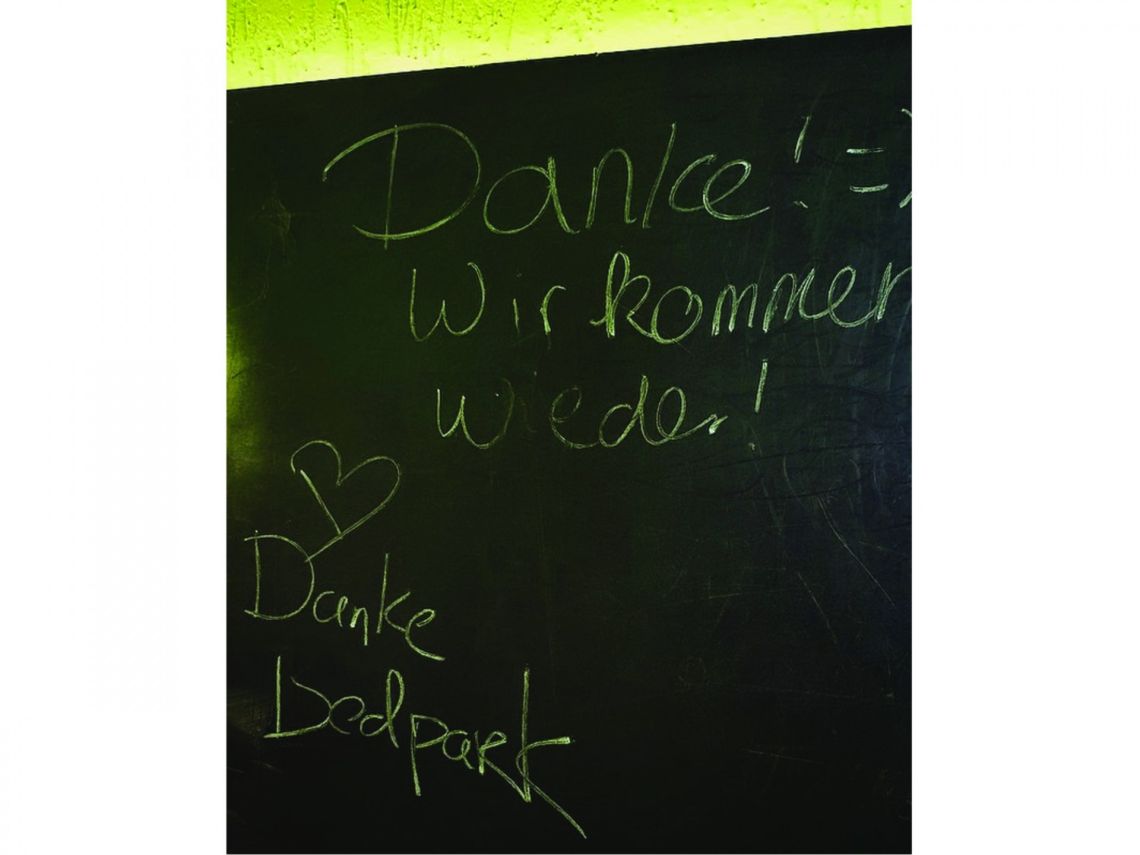 Danke! =)
Wir kommen
wieder!
Danke
Bedpark